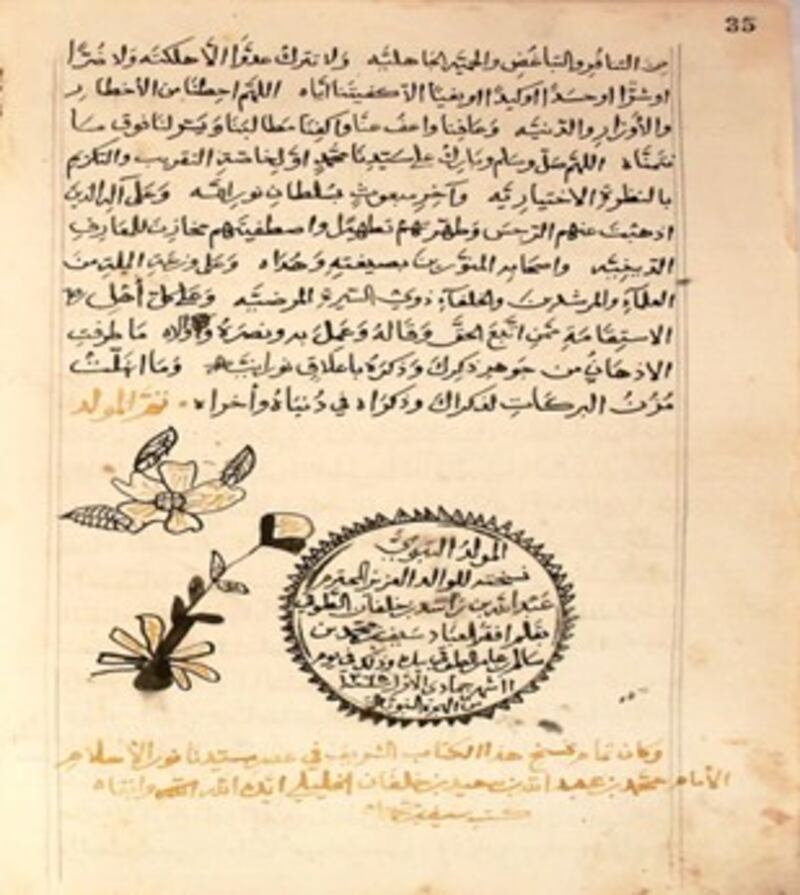 35
من التنافر والتباغض والحميّة الجاهليّه ولا تترك عدوًّا الّا اهلكته ولا ضُرًّا
او شرًّا او حسدًا او كيدًا او بغيًا الا كفيتنا ايّاه اللهمّ احِطنا من الأخطارِ
والأوزارِ والدّنيّه وعافِنا واعفُ عنّا واكفِنا مطالبنا ويسّر لنا فوق ما
نتمنّاه اللهمّ صلّ وسلّم وبارك على سيّدِنا محمّدٍ اوّل خاصّة التقريب والتكريم
بالنظرةِ الاختياريّه وآخر مبعوثٍ بسلطانِ نورانيّه وعلى آلِه الذين
اذهبتَ عنهم الرّجسَ وطهّرتهم تطهيرًا واصطفيتهم مخازن للمعارفِ
الدّينيّه واصحابه المنوّرين بصيغتهِ وهداه وعلى ورثةِ الملّة من
العلمآءِ والمرشدين والخلفآء ذوي السيرةِ المرضيّه وعلى كلّ أهل
الاستقامةِ ممّن اتّبع الحقّ وقاله وعملَ به ونصرَهُ ووالاه ما طرفتِ
الاذهانُ من جوهر ذكرك وذكرهُ باعلاقٍ نورانيّه وما انهلّتْ
مُزْنُ البركاتِ لذكراكَ وذكرَاه في دُنياهُ وأخراه تمّ المولد
المولد النبويّ
نسخته للوالد العزيز المحترم
عبدالله بن راشد بن خلفان
بقلم افقر العباد سيف بن محمد بن
سالم بن وذلك في يوم
١١ شهر جمادى
من الهجرة النبويه
وكان تمام نسخ هذا الكتاب الشريف في عصر سيّدنا نور الاسلام
الأمام محمّد بن عبدالله بن سعيد بن خلفان الخليلي ايّده الله وابقاه
كتبه سيف بن محمد